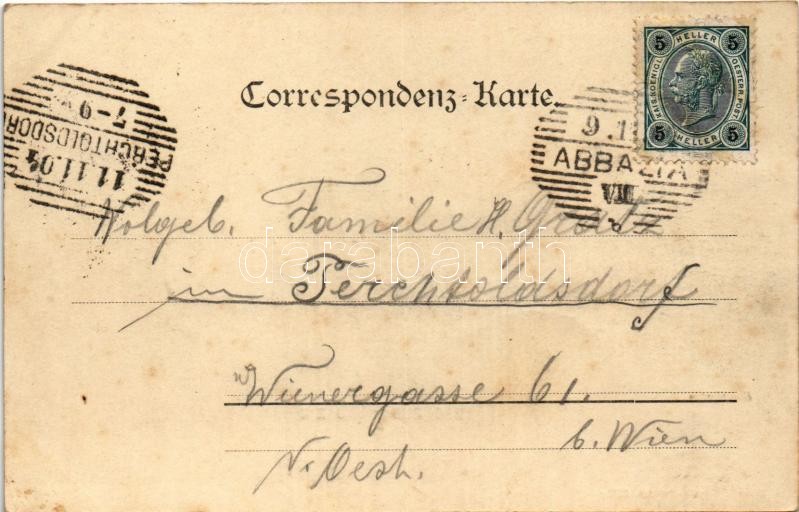 5 HELLER 5
KAIS. KOENIGL. OESTERR. POST
5 HELLER 5
Correspondenz-Karte.
11.11.04
7-9
PERCHTOLDSDORF
9.11
ABBAZIA
VIII
Familie H.
in Perchtoldsdorf
Wienergasse 61.
b. Wien
N. Oesh.
darabanth